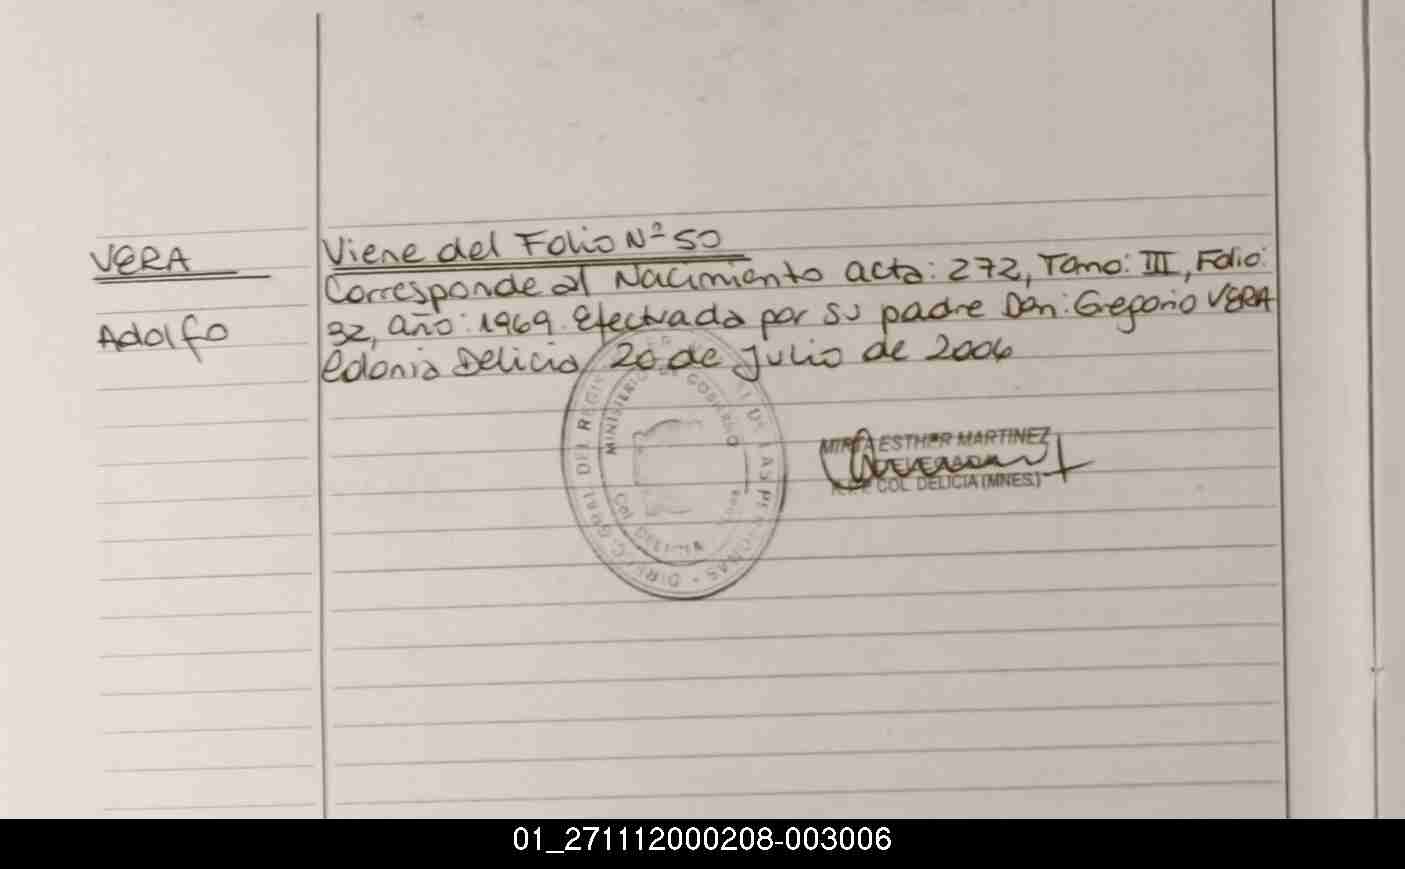 VERA
Adolfo
Viene del Folio Nº 50
Corresponde al Nacimiento acta: 272, Tomo: III, Folio:
32, año: 1969. Efectuada por su padre Don: Gregorio VERA
Colonia Delicia, 20 de Julio de 2006
MINISTERIO DE GOBIERNO
DEL REGIS
DE LAS PERSONAS
ESTHER MARTINEZ
COL. DELICIA (MNES.)
01_271112000208-003006